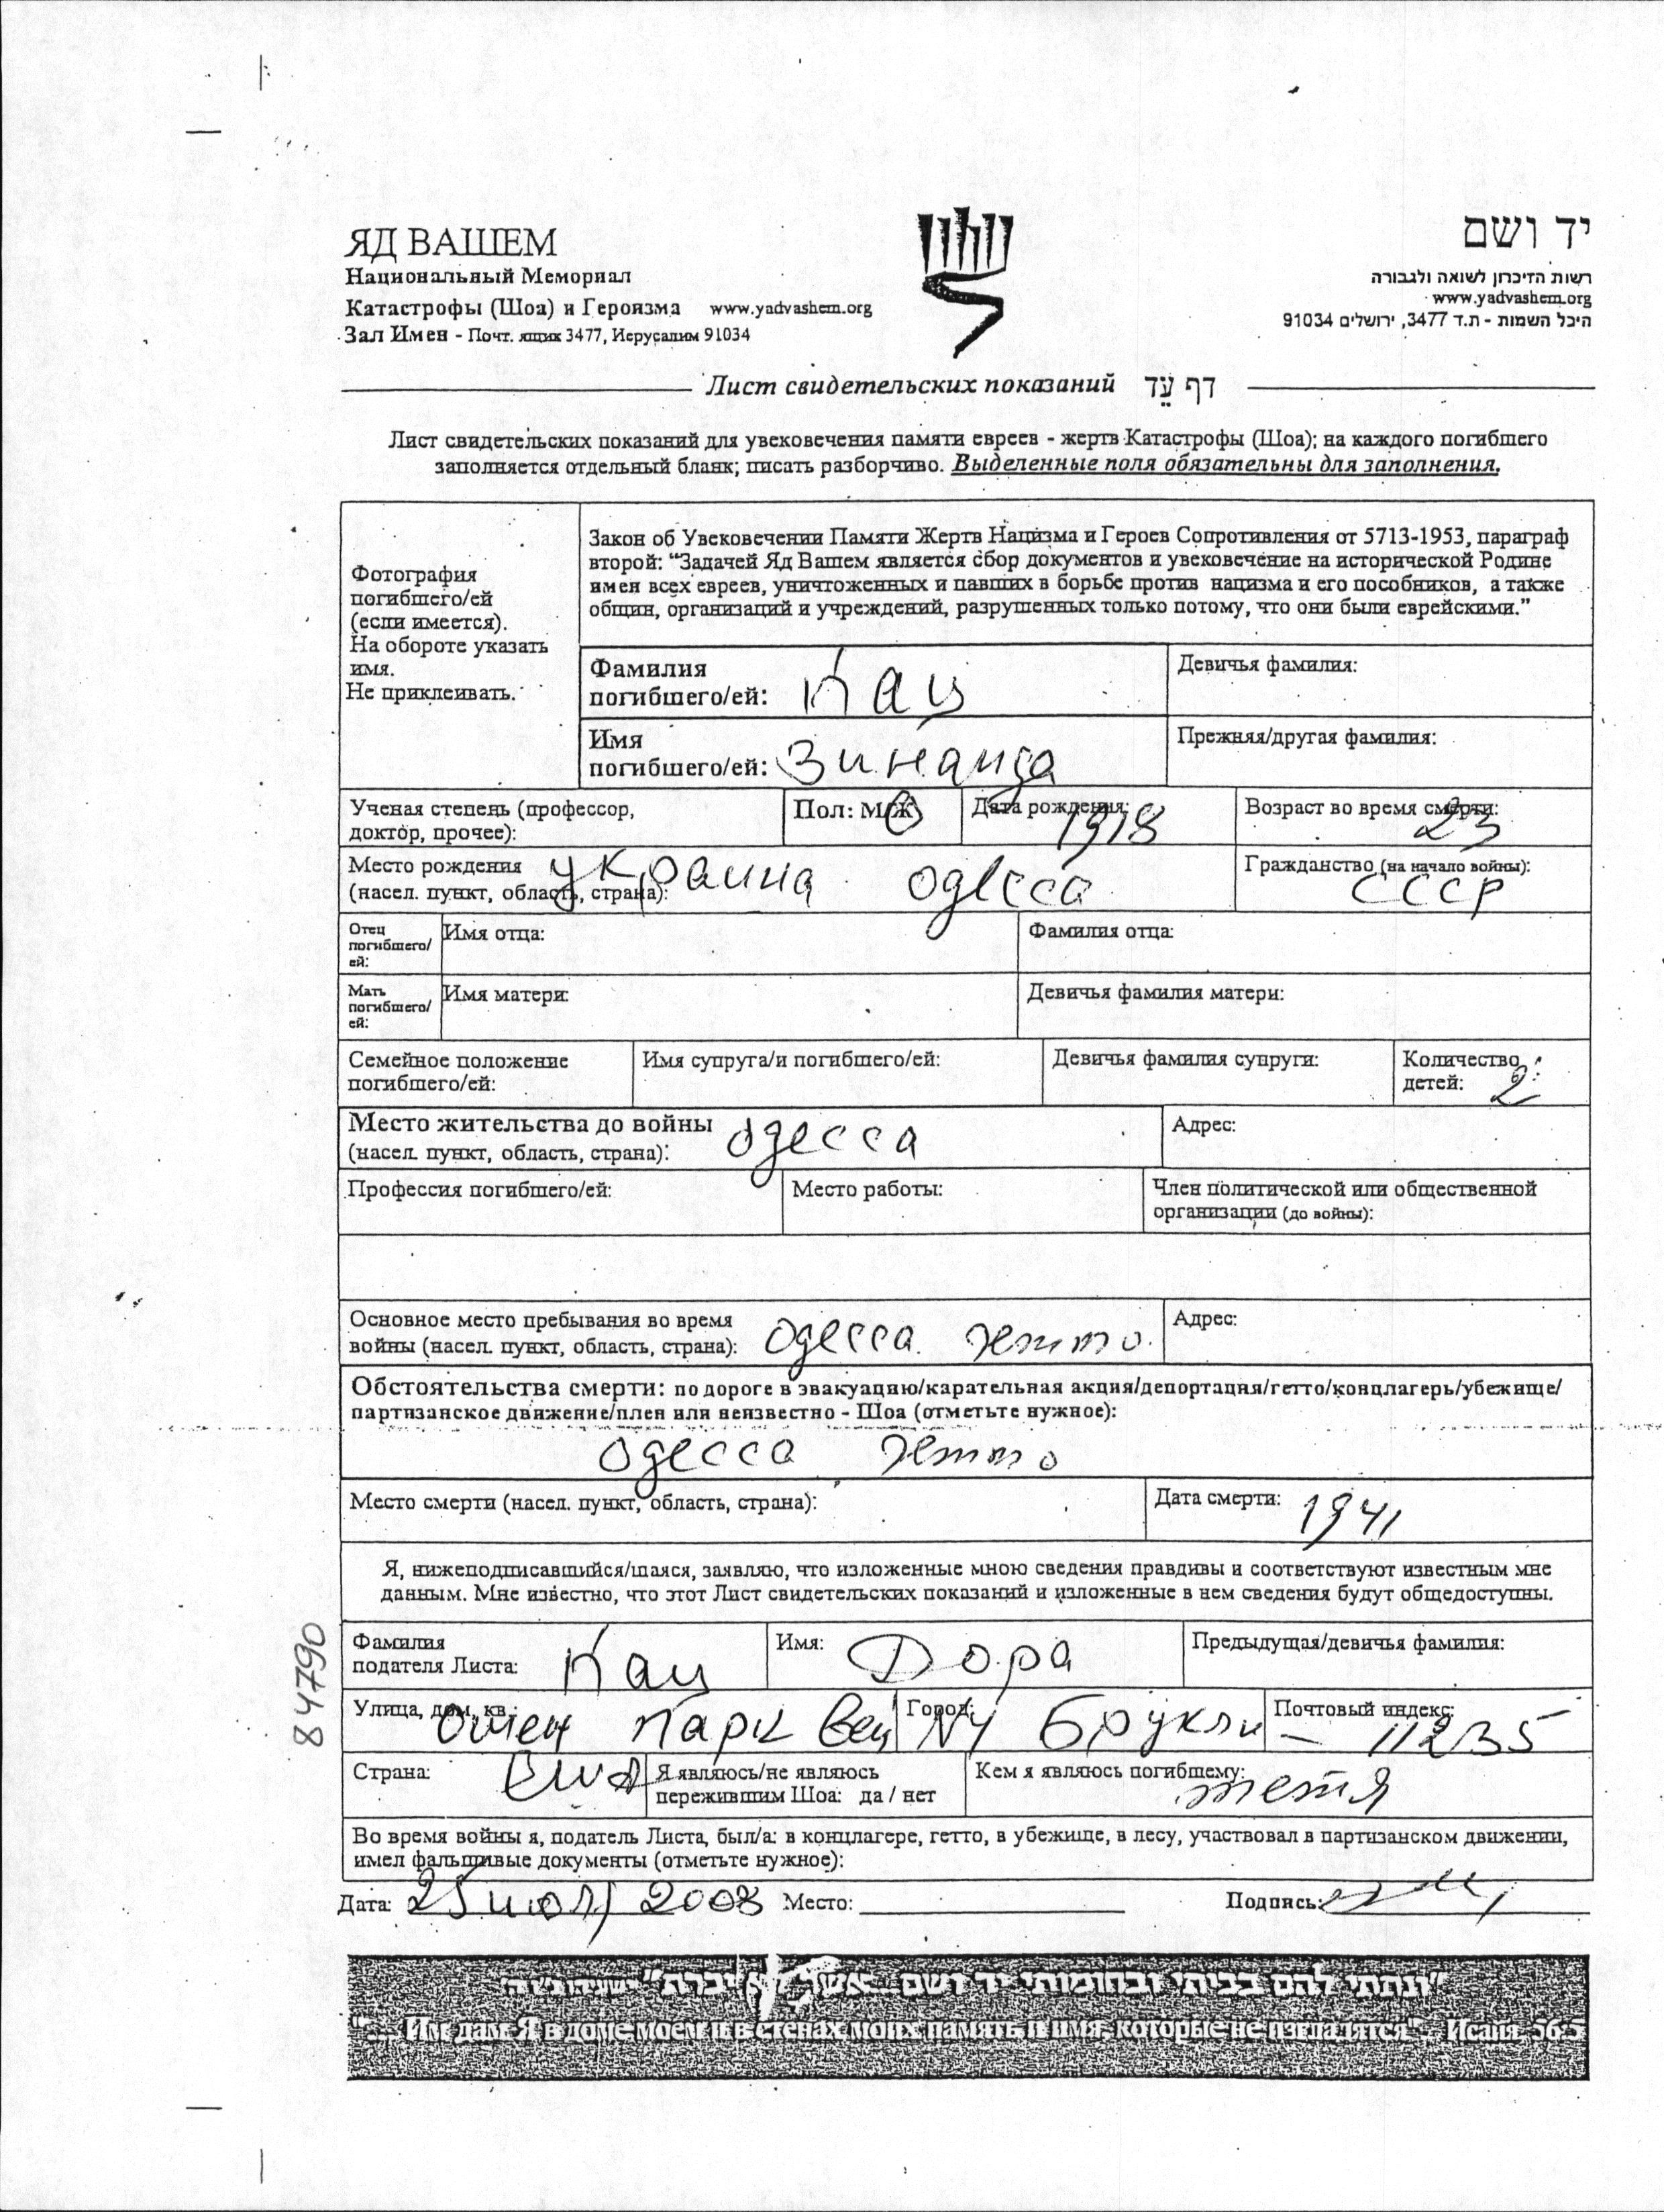 ЯД ВАШЕМ
Национальный Мемориал
Катастрофы (Шоа) и Героизма www.yadvashem.org
Зал Имен - Почт. ящик 3477, Иерусалим 91034
יד ושם
רשות הזיכרון לשואה ולגבורה
www.yadvashem.org
היכל השמות - ת.ד 3477, ירושלים 91034
Лист свидетельских показаний דף עֵד
Лист свидетельских показаний для увековечения памяти евреев - жертв Катастрофы (Шоа); на каждого погибшего
заполняется отдельный бланк; писать разборчиво. Выделенные поля обязательны для заполнения.
Фотография
погибшего/ей
(если имеется).
На обороте указать
имя.
Не приклеивать.
Закон об Увековечении Памяти Жертв Нацизма и Героев Сопротивления от 5713-1953, параграф
второй: “Задачей Яд Вашем является сбор документов и увековечение на исторической Родине
имен всех евреев, уничтоженных и павших в борьбе против нацизма и его пособников, а также
общин, организаций и учреждений, разрушенных только потому, что они были еврейскими.”
Фамилия
погибшего/ей: Кац
Девичья фамилия:
Имя
погибшего/ей: Зинаида
Прежняя/другая фамилия:
Ученая степень (профессор,
доктор, прочее):
Пол: М/Ж
Дата рождения: 1918
Возраст во время смерти: 23
Место рождения
(насел. пункт, область, страна): Украина Одесса
Гражданство (на начало войны):
СССР
Отец
погибшего/
ей:
Имя отца:
Фамилия отца:
Мать
погибшего/
ей:
Имя матери:
Девичья фамилия матери:
Семейное положение
погибшего/ей:
Имя супруга/и погибшего/ей:
Девичья фамилия супруги:
Количество
детей: 2
Место жительства до войны
(насел. пункт, область, страна): Одесса
Адрес:
Профессия погибшего/ей:
Место работы:
Член политической или общественной
организации (до войны):
Основное место пребывания во время
войны (насел. пункт, область, страна): Одесса. гетто.
Адрес:
Обстоятельства смерти: по дороге в эвакуацию/карательная акция/депортация/гетто/концлагерь/убежище/
партизанское движение/плен или неизвестно - Шоа (отметьте нужное):
Одесса гетто
Место смерти (насел. пункт, область, страна):
Дата смерти: 1941
Я, нижеподписавшийся/шаяся, заявляю, что изложенные мною сведения правдивы и соответствуют известным мне
данным. Мне известно, что этот Лист свидетельских показаний и изложенные в нем сведения будут общедоступны.
84790
Фамилия
подателя Листа: Кац
Имя: Дора
Предыдущая/девичья фамилия:
Улица, дом, кв.: Парк
Город: NY Бруклин
Почтовый индекс: 11235
Страна: США
Я являюсь/не являюсь
пережившим Шоа: да / нет
Кем я являюсь погибшему:
тетя
Во время войны я, податель Листа, был/а: в концлагере, гетто, в убежище, в лесу, участвовал в партизанском движении,
имел фальшивые документы (отметьте нужное):
Дата: 25 2008 Место: Подпись:
"ונתתי להם בביתי ובחומותי יד ושם ...אשר לא יכרת" ישעיהו נ"ו ה'
"... Им дам Я в доме моем и в стенах моих память и имя, которые не изгладятся". Исаия 56:5